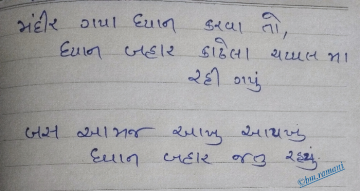 મંદીર ગયા ધ્યાન કરવા તો,
ધ્યાન બહાર કાઢેલા ચપ્પલ મા
રહી ગયું
બસ આમજ આખુ આયખુ
ધ્યાન બહાર જતુ રહ્યું.